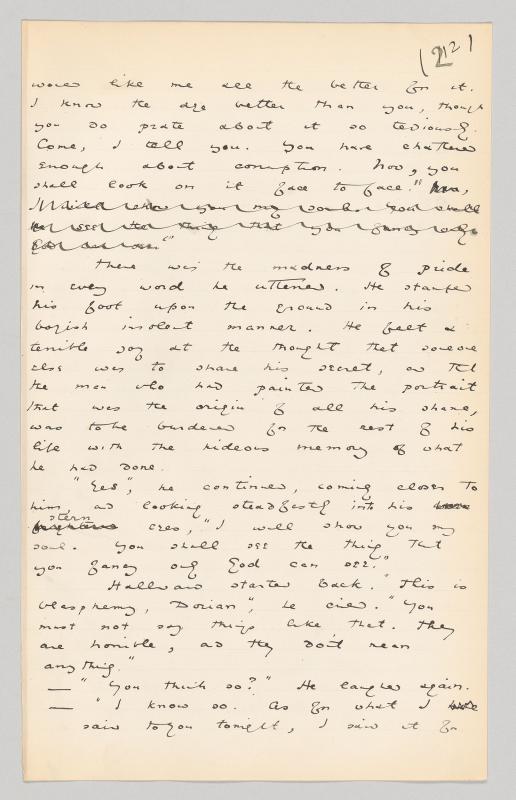 (212)
would like me all the better for it.
I know the age better than you, though
you do prate about it so tediously.
Come, I tell you. You have chattered
enough about corruption. Now, you
shall look on it face to face."
There was the madness of pride
in every word he uttered. He stamped
his foot upon the ground in his
boyish insolent manner. He felt a
terrible joy at the thought that someone
else was to share his secret, and that
the man who had painted the portrait
that was the origin of all his shame,
was to be burdened for the rest of his
life with the hideous memory of what
he had done.
"Yes", he continued, coming closer to
him, and looking steadfastly into his
stern
eyes, "I will show you my
soul. You shall see the thing that
you fancy only God can see."
Hallward started back. "This is
blasphemy, Dorian", he cried. "You
must not say things like that. They
are horrible, and they don't mean
anything."
— "You think so?" He laughed again.
— "I know so. As for what I
said to you tonight, I said it for